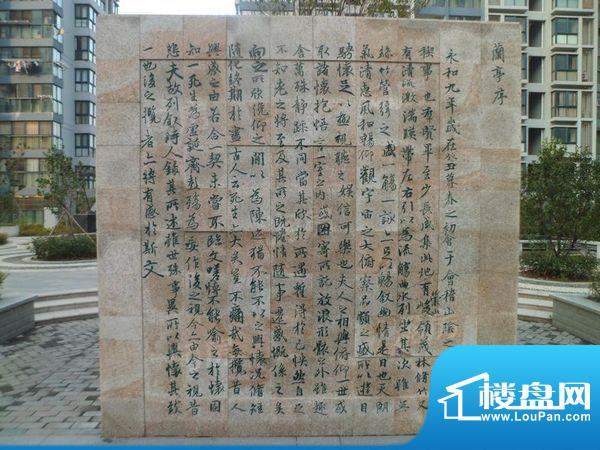 蘭亭序
永和九年歲在癸丑暮春之初會于會稽山陰之
稧事也羣賢畢至少長咸集此地有崇山峻領茂林脩竹又
有清流激湍暎帶左右引以為流觴曲水列坐其次雖無
絲竹管弦之盛一觴一詠亦足以暢敘幽情是日也天朗
氣清惠風和暢仰觀宇宙之大俯察品類之盛所以遊目
騁懷足以極視聽之娛信可樂也夫人之相與俯仰一世或
取諸懷抱悟言一室之內或因寄所託放浪形骸之外雖趣
舍萬殊靜躁不同當其欣於所遇暫得於己快然自足
不知老之將至及其所之既惓情隨事遷感慨係之矣
向之所欣俛仰之閒以為陳迹猶不能不以之興懷況脩短
隨化終期於盡古人云死生亦大矣豈不痛哉每攬昔人
興感之由若合一契未嘗不臨文嗟悼不能喻之於懷固
知一死生為虛誕齊彭殤為妄作後之視今亦由今之視昔
悲夫故列敘時人錄其所述雖世殊事異所以興懷其致
一也後之攬者亦將有感於斯文
楼盘网
www.LouPan.com